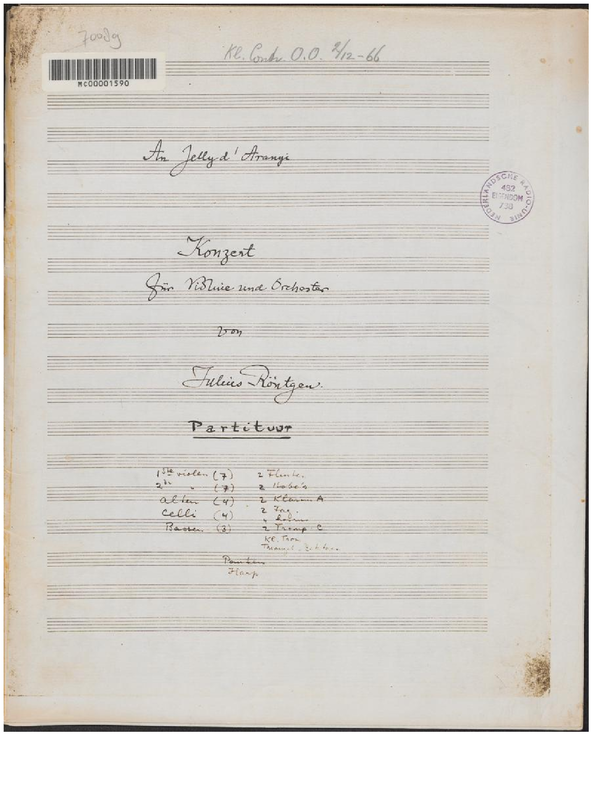 70089
Kl. Contr. O.O. 2/12-66
MC00001590
An Jelly d'Arangi
NEDERLANDSCHE RADIO-UNIE
EIGENDOM
Konzert
für Violine und Orchester
von
Julius Röntgen.
Partituur
1ste violen (7) 2 Fluiten
2de " (7) 2 Hobo's
alten (4) 2 Klarin A
Celli (4) 2 Fag.
Bassen (3) 2 Tromp. C
Kl. Trom
Pauken
Harp